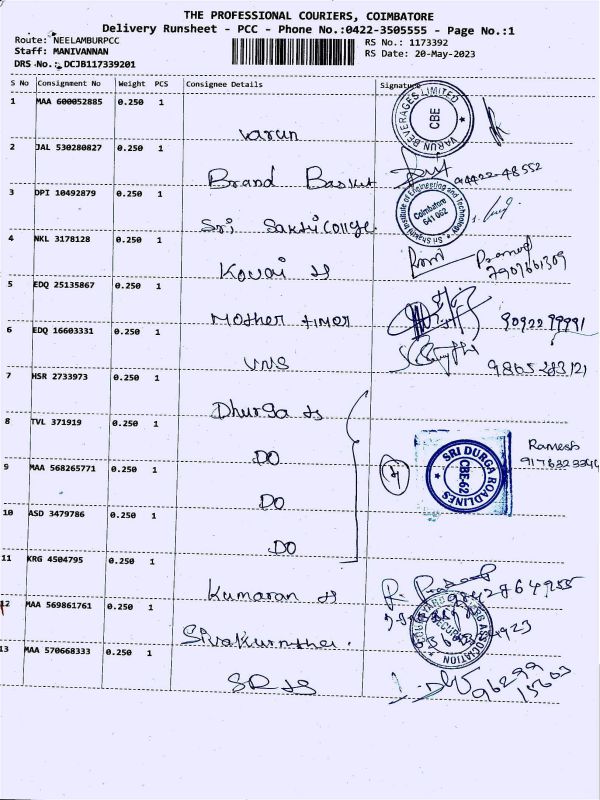 THE PROFESSIONAL COURIERS, COIMBATORE
Delivery Runsheet - PCC - Phone No.:0422-3505555 - Page No.:1
Route: NEELAMBURPCC
RS No.: 1173392
Staff: MANIVANNAN
RS Date: 20-May-2023
DRS No.: DCJB117339201
S No Consignment No Weight PCS Consignee Details Signature
1 MAA 600052885 0.250 1 Varun
VARUN BEVERAGES LIMITED CBE
2 JAL 530280827 0.250 1 Brand Basket
94422-48552
3 DPI 10492879 0.250 1 Sri Sakthi College
Sri Shakthi Institute of Engineering and Technology Coimbatore 641 062
4 NKL 3178128 0.250 1 Kovai
Pramod
7907661309
5 EDQ 25135867 0.250 1 Mother
90922 99991
6 EDQ 16603331 0.250 1 VNS
9865283121
7 HSR 2733973 0.250 1 Dhurga
8 TVL 371919 0.250 1 DO
SRI DURGA ROADLINES CBE-62
Ramesh
9 MAA 568265771 0.250 1 DO
10 ASD 3479786 0.250 1 DO
11 KRG 4504795 0.250 1 Kumaran
12 MAA 569861761 0.250 1
13 MAA 570668333 0.250 1 SR
96299